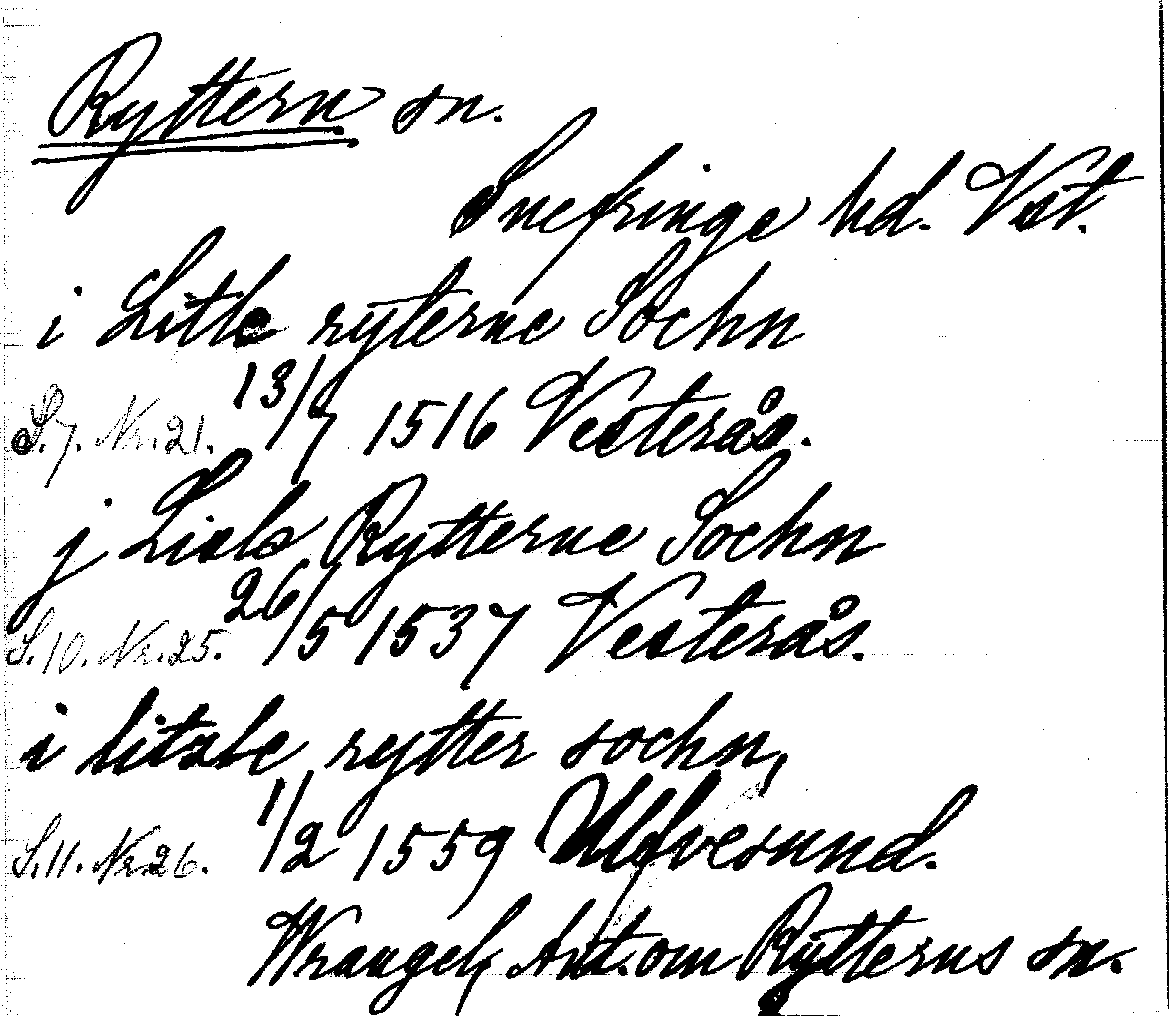 Ryttern sn.
Snefringe hd. Vst.
i Litle ryterne Sochn
S.7. Nr.21. 13/7 1516 Vesterås.
j Lisle Rytterne Sochn
S.10. Nr.25. 26/5 1537 Vesterås.
i litzle rytter sochn,
S.11. Nr.26. 1/2 1559 Ulfvesund.
Wrangel, Ant. om Rytterns sn.